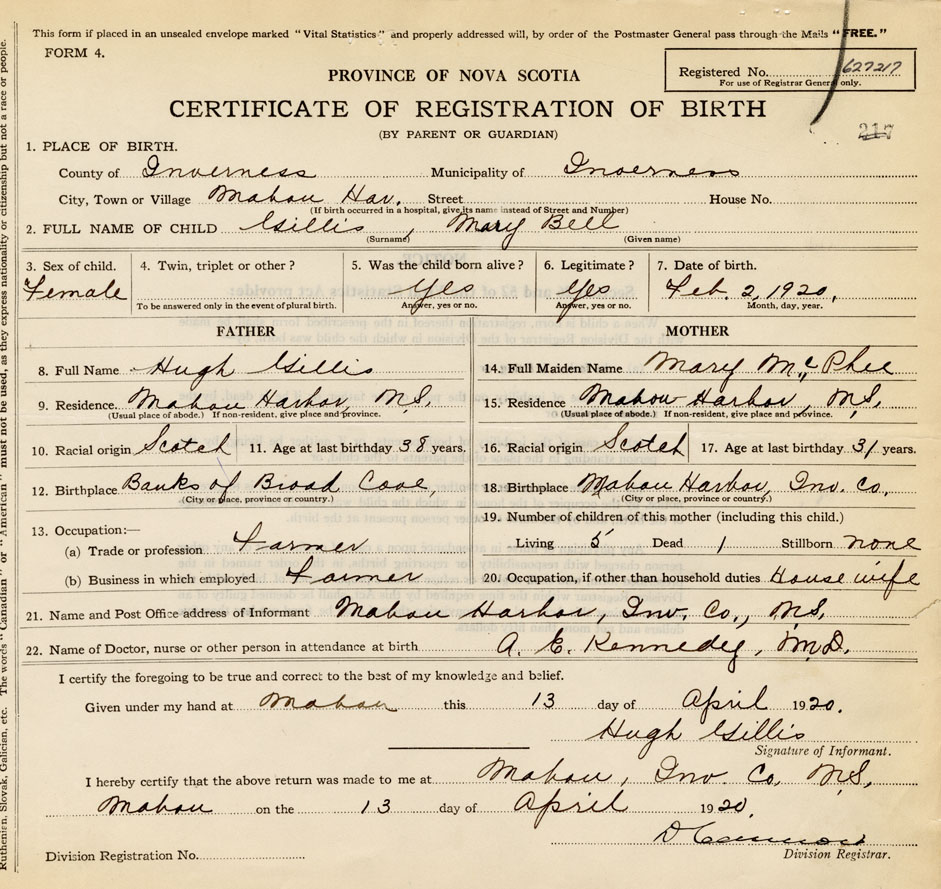 This form if placed in an unsealed envelope marked "Vital Statistics" and properly addressed will, by order of the Postmaster General pass through the Mails "FREE."
FORM 4.
Registered No. 627217
For use of Registrar General only.
PROVINCE OF NOVA SCOTIA
CERTIFICATE OF REGISTRATION OF BIRTH
(BY PARENT OR GUARDIAN)
217
1. PLACE OF BIRTH.
County of Inverness Municipality of Inverness
City, Town or Village Mabou Har. Street House No.
(If birth occurred in a hospital, give its name instead of Street and Number)
2. FULL NAME OF CHILD Gillis, Mary Bell
(Surname) (Given name)
3. Sex of child. 4. Twin, triplet or other? 5. Was the child born alive? 6. Legitimate? 7. Date of birth.
Female Yes Yes Feb. 2, 1920.
To be answered only in the event of plural birth. Answer, yes or no. Answer, yes or no. Month, day, year.
FATHER MOTHER
8. Full Name Hugh Gillis 14. Full Maiden Name Mary McPhee
9. Residence Mabou Harbor, N.S. 15. Residence Mabou Harbor, N.S.
(Usual place of abode.) If non-resident, give place and province. (Usual place of abode.) If non-resident, give place and province.
10. Racial origin Scotch 11. Age at last birthday 38 years. 16. Racial origin Scotch 17. Age at last birthday 31 years.
12. Birthplace Banks of Broad Cove, 18. Birthplace Mabou Harbor, Inv. Co.
(City or place, province or country.) (City or place, province or country.)
13. Occupation:— 19. Number of children of this mother (including this child.)
(a) Trade or profession Farmer Living 5 Dead 1 Stillborn none
(b) Business in which employed Farmer 20. Occupation, if other than household duties House wife
21. Name and Post Office address of Informant Mabou Harbor, Inv. Co., N.S.
22. Name of Doctor, nurse or other person in attendance at birth A. E. Kennedy, M.D.
I certify the foregoing to be true and correct to the best of my knowledge and belief.
Given under my hand at Mabou this 13 day of April 1920.
Hugh Gillis
Signature of Informant.
I hereby certify that the above return was made to me at Mabou, Inv. Co, N.S.,
Mabou on the 13 day of April 1920.
Division Registration No. Division Registrar.
Ruthenian, Slovak, Galician, etc. The words "Canadian" or "American" must not be used, as they express nationality or citizenship but not a race or people.